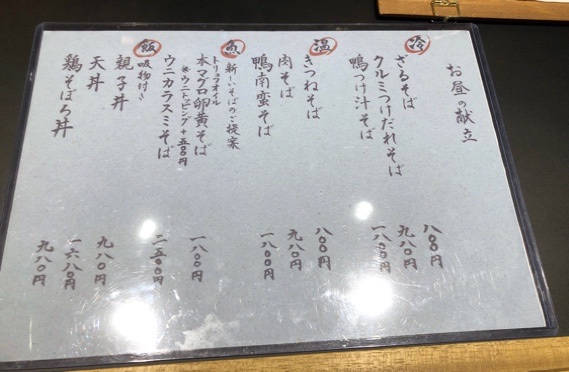 お昼の献立
冷
ざるそば 八〇〇円
クルミつけだれそば 九八〇円
鴨つけ汁そば 一八〇〇円
温
きつねそば 八〇〇円
肉そば 九八〇円
鴨南蛮そば 一八〇〇円
魚
新しいそばのご提案
トリュフオイル
本マグロ卵黄そば 一八〇〇円
※ウニトッピング+五〇〇円
ウニカラスミそば 二五〇〇円
飯
吸物付き
親子丼 九八〇円
天丼 一六八〇円
鶏そぼろ丼 九八〇円